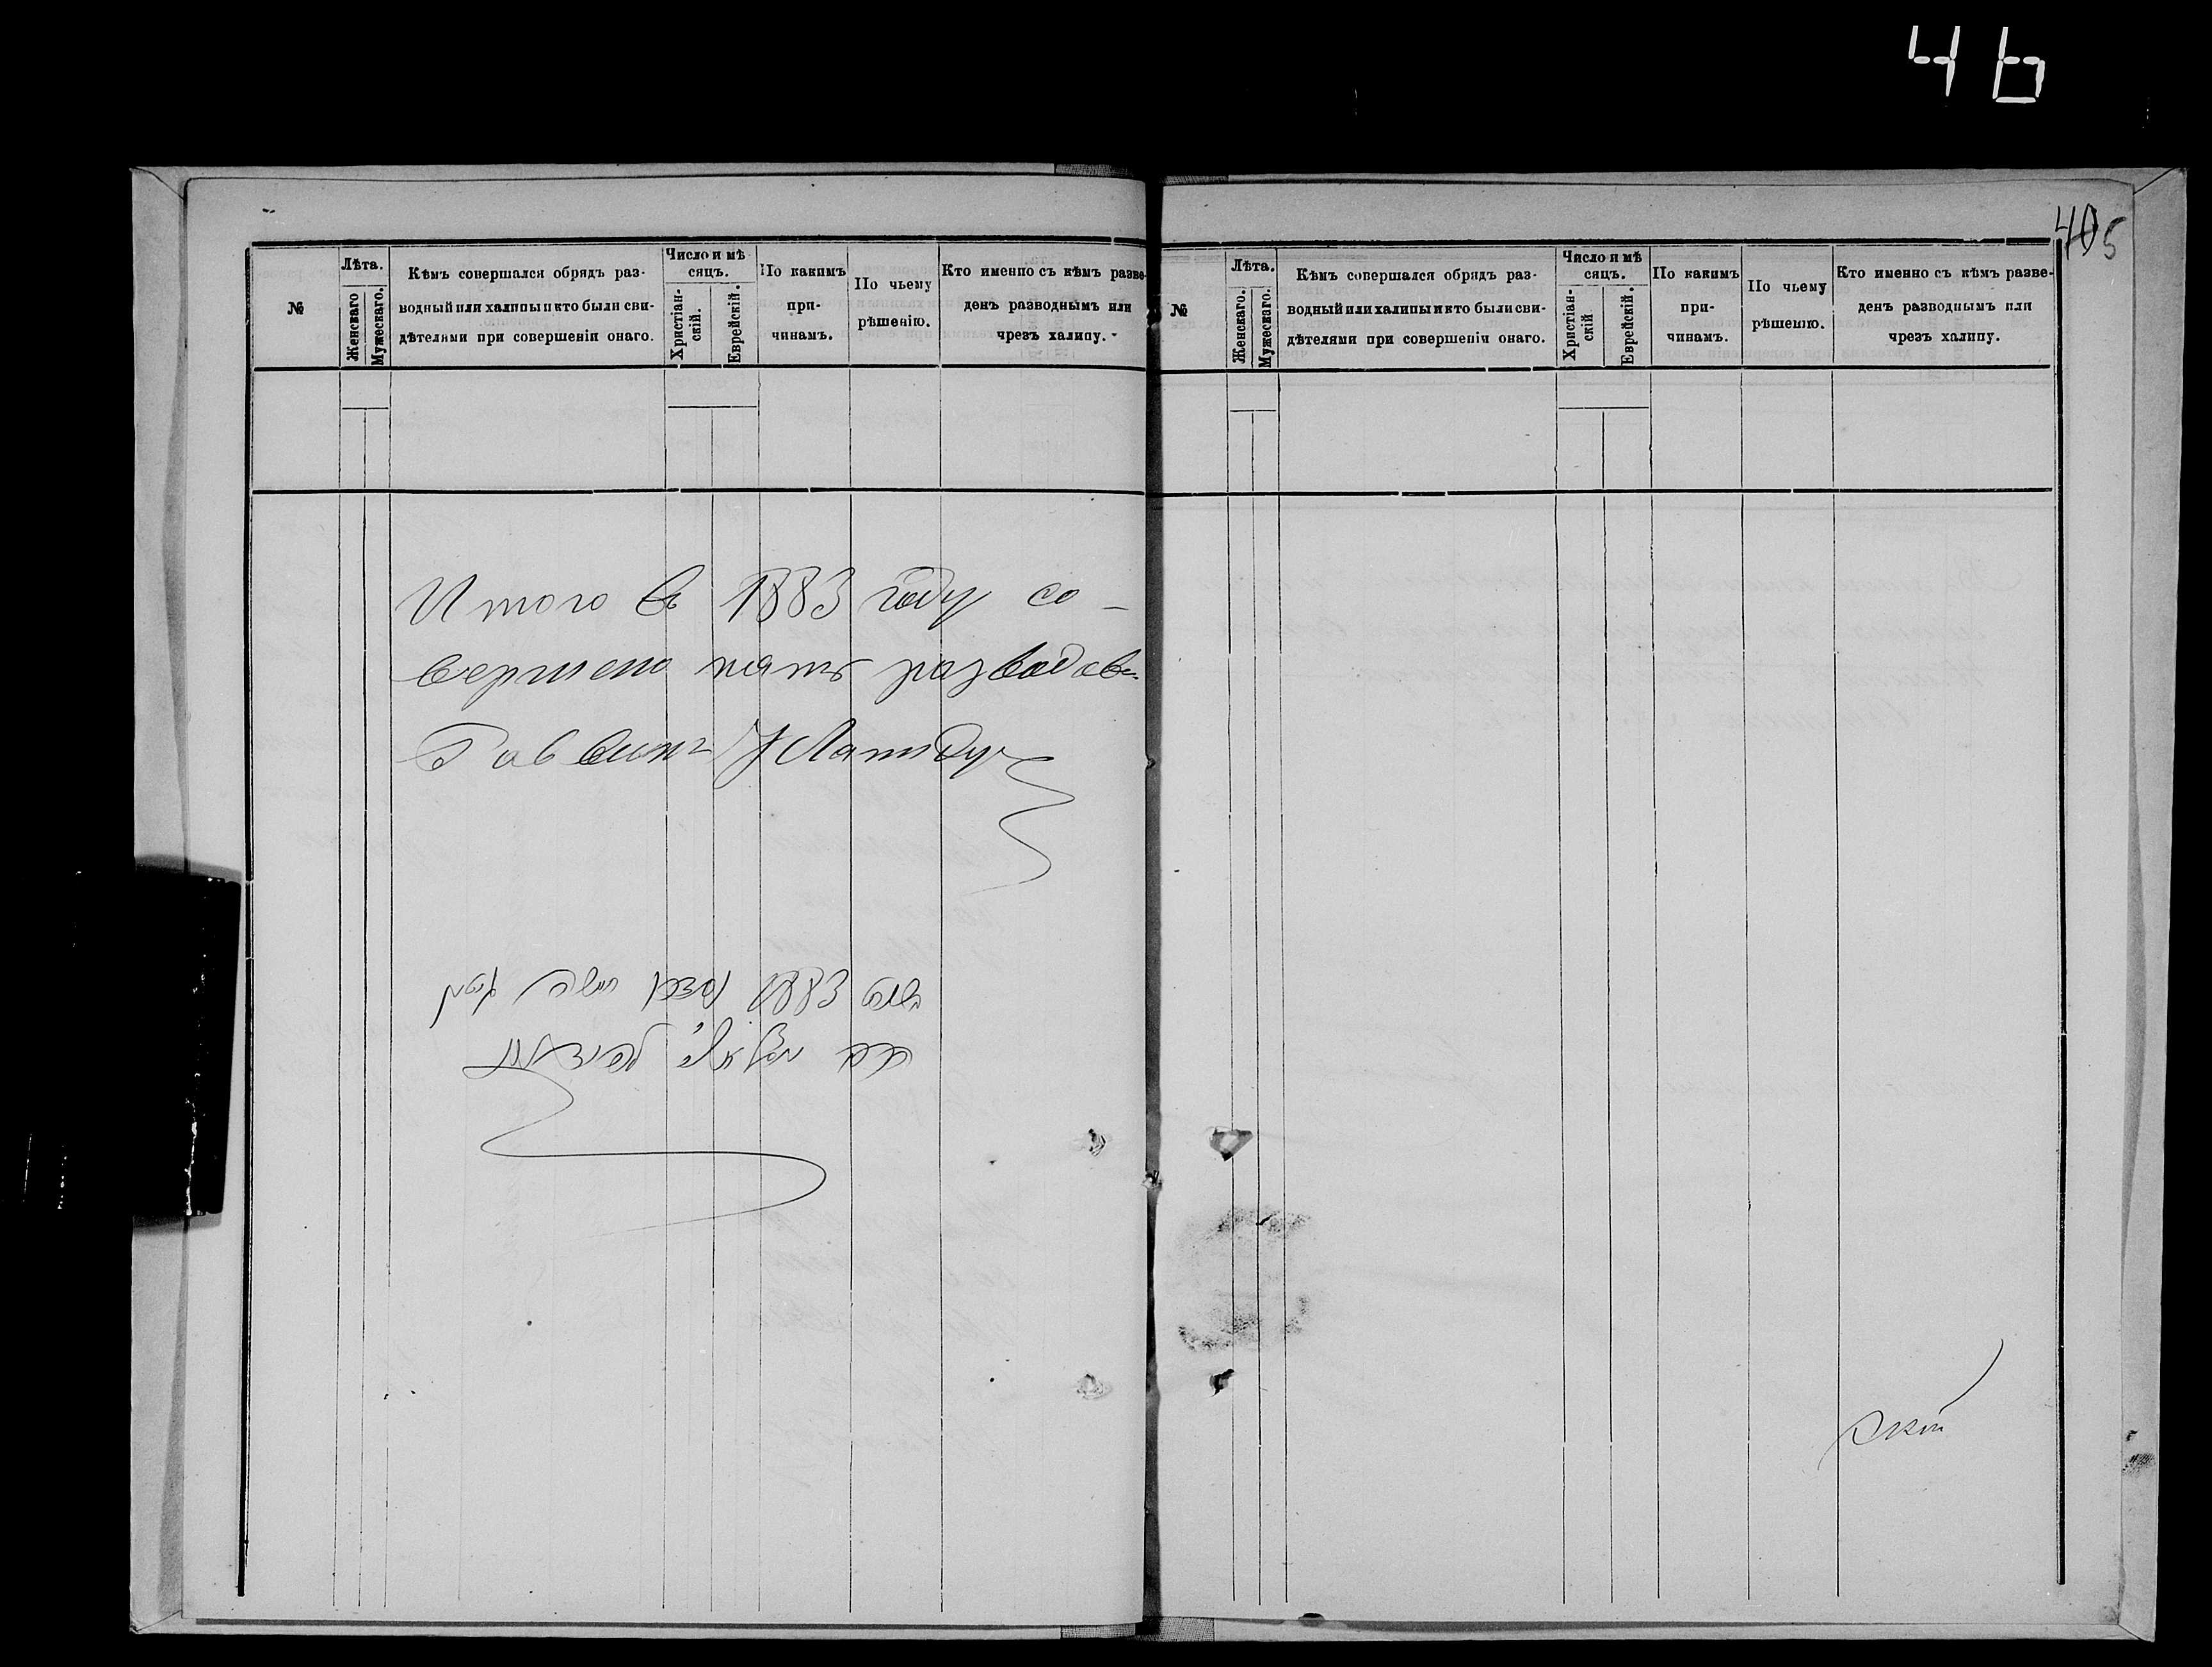 46
№
Лѣта.
Женскаго
Мужескаго.
Кѣмъ совершался обрядъ раз-
водный или халицы и кто были сви-
дѣтелями при совершеніи онаго.
Число и мѣ
сяцъ.
Христіан-
скій.
Еврейскій.
По какимъ
при-
чинамъ.
По чьему
рѣшенію.
Кто именно съ кѣмъ разве-
денъ разводнымъ или
чрезъ халицу.
Итого въ 1883 году со-
вершено пять разводовъ
Раввинъ
1883
405
№
Лѣта.
Женскаго.
Мужескаго.
Кѣмъ совершался обрядъ раз-
водный или халицы и кто были сви-
дѣтелями при совершеніи онаго.
Число и мѣ
сяцъ.
Христіан-
скій
Еврейскій.
По какимъ
при-
чинамъ.
По чьему
рѣшенію.
Кто именно съ кѣмъ разве-
денъ разводнымъ или
чрезъ халицу.
скій